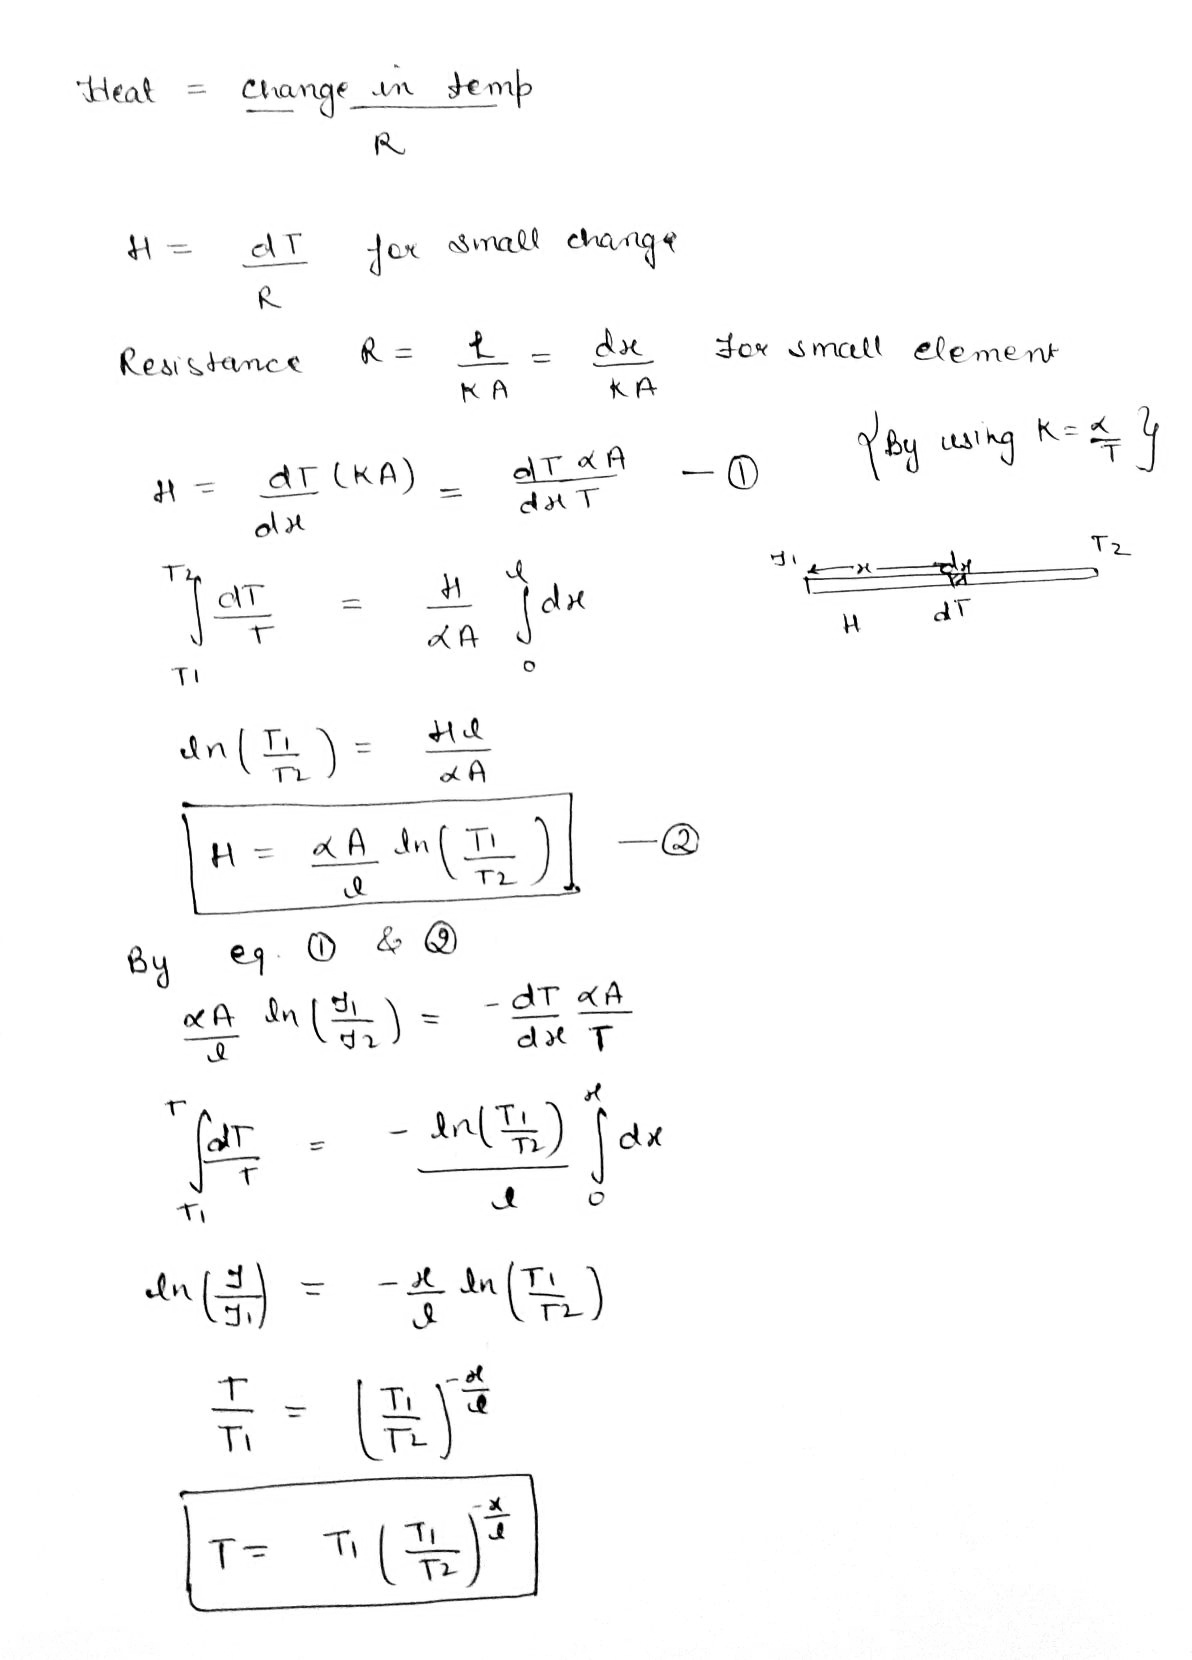 Heat = change in temp / R
H = dT / R for small change
Resistance R = l / KA = dx / KA for small element
{By using K = α / T}
H = dT (KA) / dx = dT αA / dx T — ①
T1 x dx T2
H dT
∫_T1^T2 dT / T = H / αA ∫_0^l dx
ln(T1 / T2) = Hl / αA
H = αA / l ln(T1 / T2) — ②
By eq. ① & ②
αA / l ln(T1 / T2) = - dT / dx αA / T
∫_T1^T dT / T = - ln(T1 / T2) / l ∫_0^x dx
ln(T / T1) = - x / l ln(T1 / T2)
T / T1 = (T1 / T2)^(-x/l)
T = T1 (T1 / T2)^(-x/l)